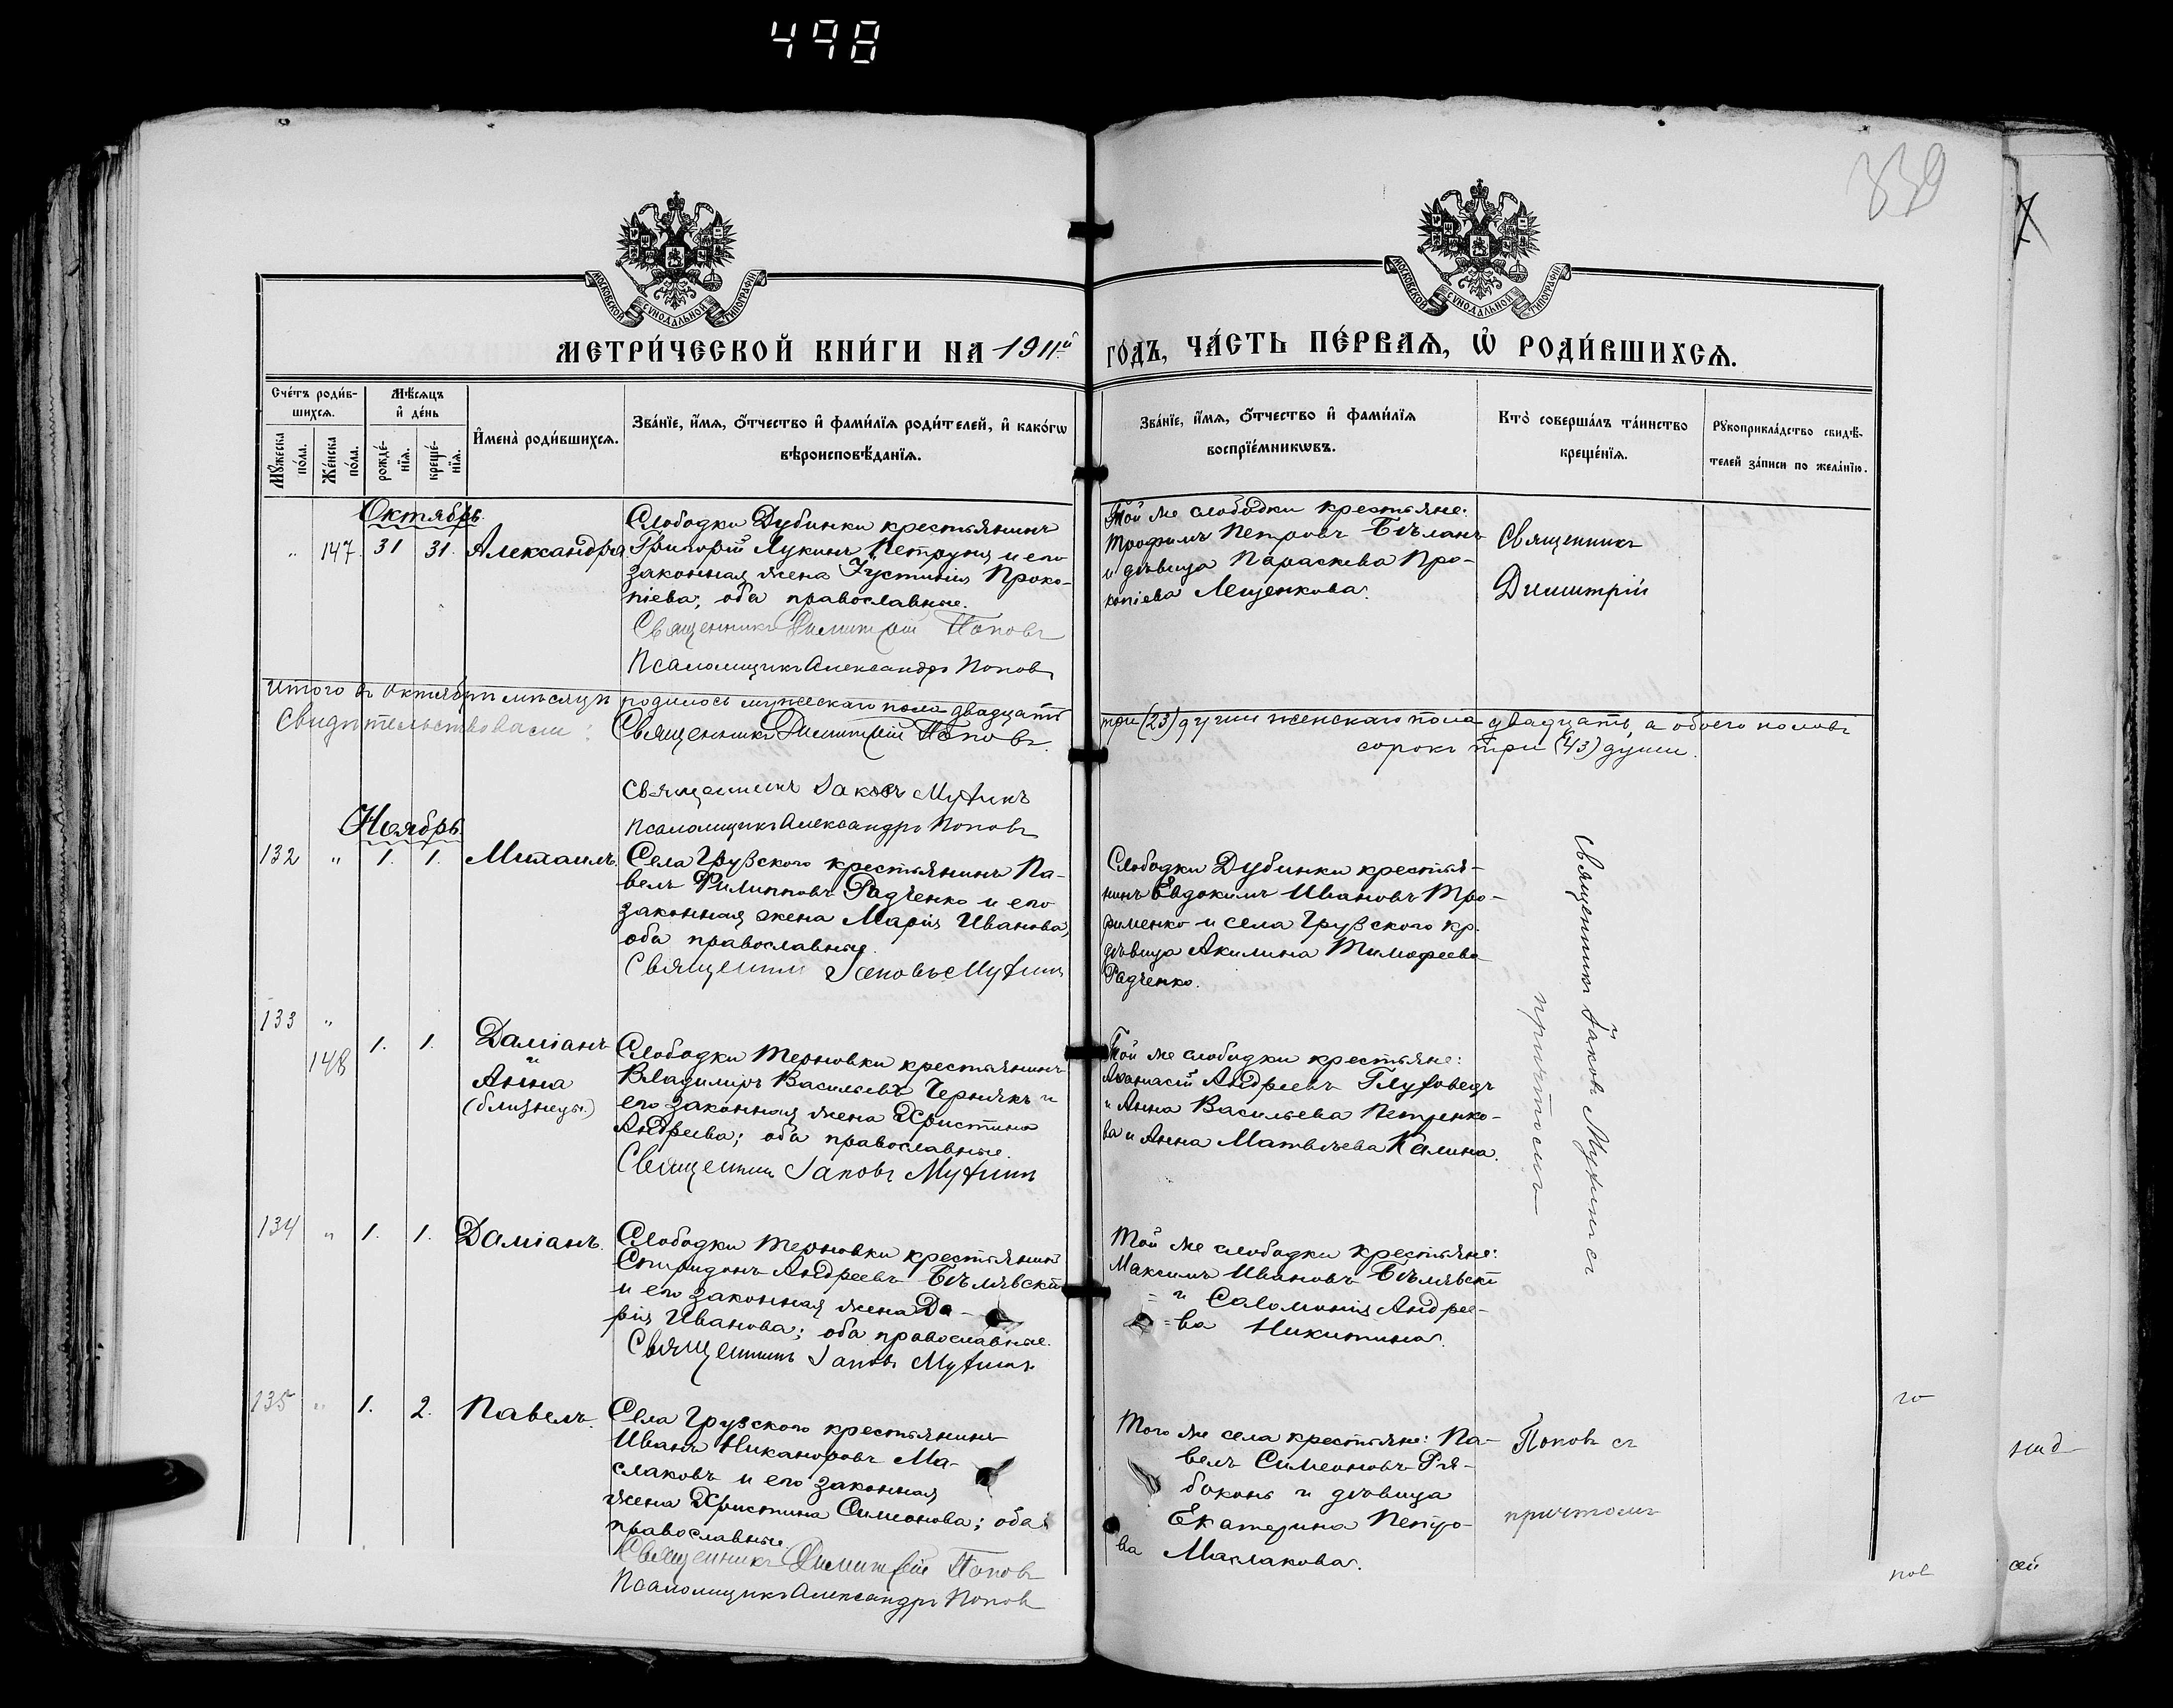 498
339
МОСКОВСКОЙ СУНОДАЛЬНОЙ ТИПОГРАФІИ
МОСКОВСКОЙ СУНОДАЛЬНОЙ ТИПОГРАФІИ
МЕТРИ́ЧЕСКОЙ КНИ́ГИ НА 1911й
ГО́ДЪ, ЧА́СТЬ ПЕ́РВАѦ, Ѡ РОДИ́ВШИХСѦ.
Сче́тъ роди́в-
шихсѧ.
Мꙋ́жеска по́ла.
Же́нска по́ла.
Мѣ́сѧцъ
и҆ де́нь
рожде́-
нїѧ.
креще́-
нїѧ.
И҆мена̀ роди́вшихсѧ.
Зва́нїе, и҆́мѧ, ѻ҆́тчество и҆ фами́лїѧ роди́телей, и҆ како́гѡ
вѣроисповѣ́данїѧ.
Зва́нїе, и҆́мѧ, ѻ҆́тчество и҆ фами́лїѧ
воспрїе́мникѡвъ.
Кто̀ соверша́лъ та́инство
креще́нїѧ.
Рꙋкоприкла́дство свидѣ́-
телей за́писи по жела́нїю.
Октябрь.
" 147. 31 31. Александра
Слободки Дубинки крестьянинъ
Григорій Лукинъ Петруня и его
законная жена Іустинія Проко-
піева; оба православные.
Священникъ Димитрій Поповъ
Псаломщикъ Александръ Поповъ
Той же слободки крестьяне:
Трофимъ Петровъ Бѣланъ
и дѣвица Параскева Про-
копіева Лещенкова.
Священникъ
Димитрій
Итого въ Октябрѣ мѣсяцѣ родилось мужескаго пола двадцать
три (23) души женскаго пола двадцать, а обоего половъ
сорокъ три (43) души.
Свидѣтельствовали: Священникъ Димитрій Поповъ.
Священникъ Іаковъ Мухинъ
Псаломщикъ Александръ Поповъ
Ноябрь
132 " 1. 1. Михаилъ.
Села Грузского крестьянинъ Па-
велъ Филипповъ Радченко и его
законная жена Марія Иванова,
оба православные.
Священникъ Іаковъ Мухинъ
Слободки Дубинки крестья-
нинъ Евдокимъ Ивановъ Тро-
фименко и села Грузского кр.
дѣвица Акилина Тимофеева
Радченко.
Священникъ Іаковъ Мухинъ съ
причтомъ
133 "
148 1. 1. Даміанъ
и
Анна
(близнецы.)
Слободки Терновки крестьянинъ
Владимиръ Васильевъ Чернякъ и
его законная жена Христина
Андреева; оба православные.
Священникъ Іаковъ Мухинъ
Той же слободки крестьяне:
Аѳанасій Андреевъ Глуховецъ
и Анна Васильева Петренко-
ва и Анна Матвѣева Калина.
134 " 1. 1. Даміанъ.
Слободки Терновки крестьянинъ
Спиридонъ Андреевъ Бѣлявскій
и его законная жена Да-
рія Иванова; оба православные.
Священникъ Іаковъ Мухинъ
Той же слободки крестьяне:
Максимъ Ивановъ Бѣлявскій
= и Саломонія Андрее-
= ва Никитина.
135 " 1. 2. Павелъ.
Села Грузского крестьянинъ
Иванъ Никаноровъ Ма-
слаковъ и его законная
жена Христина Симеонова; оба
православные
Священникъ Димитрій Поповъ
Псаломщикъ Александръ Поповъ
Того же села крестьяне: Па-
велъ Симеоновъ Ря-
боконь и дѣвица
Екатерина Петро-
ва Маслакова.
Поповъ съ
причтомъ
го
пов
сей